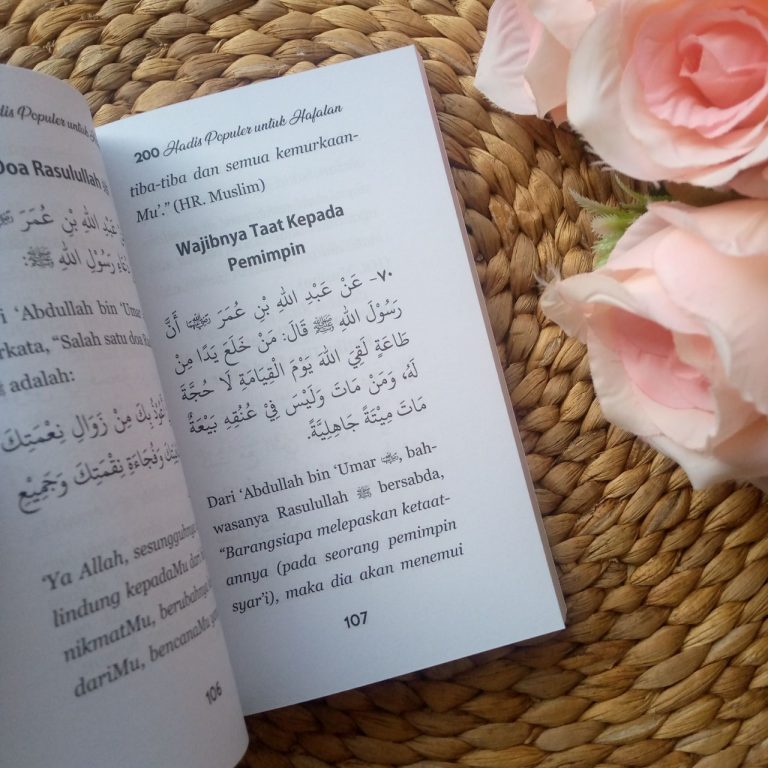 dis Populer untuk
Doa Rasulullah ﷺ
عَبْدِ اللهِ بْنِ عُمَرَ
رَسُوْلِ اللهِ ﷺ:
'Abdullah bin 'Umar
rkata, "Salah satu doa
adalah:
بِكَ مِنْ زَوَالِ نِعْمَتِكَ
وَفُجَاءَةِ نِقْمَتِكَ وَجَمِيْعِ
'Ya Allah, sesungguhny
lindung kepadaMu dari
nikmatMu, berubahny
dariMu, bencanaMu
106
200 Hadis Populer untuk Hafalan
tiba-tiba dan semua kemurkaan-
Mu'." (HR. Muslim)
Wajibnya Taat Kepada
Pemimpin
٧٠- عَنْ عَبْدِ اللهِ بْنِ عُمَرَ رضي الله عنهما أَنَّ
رَسُوْلَ اللهِ ﷺ قَالَ: مَنْ خَلَعَ يَدًا مِنْ
طَاعَةٍ لَقِيَ اللهَ يَوْمَ الْقِيَامَةِ لَا حُجَّةَ
لَهُ، وَمَنْ مَاتَ وَلَيْسَ فِي عُنُقِهِ بَيْعَةٌ
مَاتَ مِيْتَةً جَاهِلِيَّةً.
Dari 'Abdullah bin 'Umar, bah-
wasanya Rasulullah ﷺ bersabda,
"Barangsiapa melepaskan ketaat-
annya (pada seorang pemimpin
syar'i), maka dia akan menemui
107